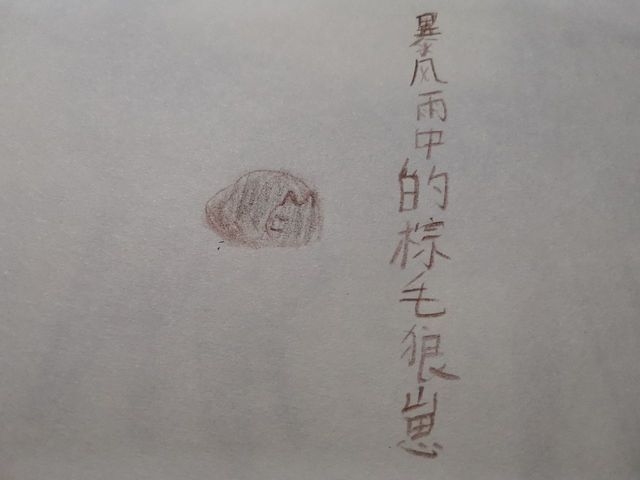 暴风雨中的棕毛狼崽